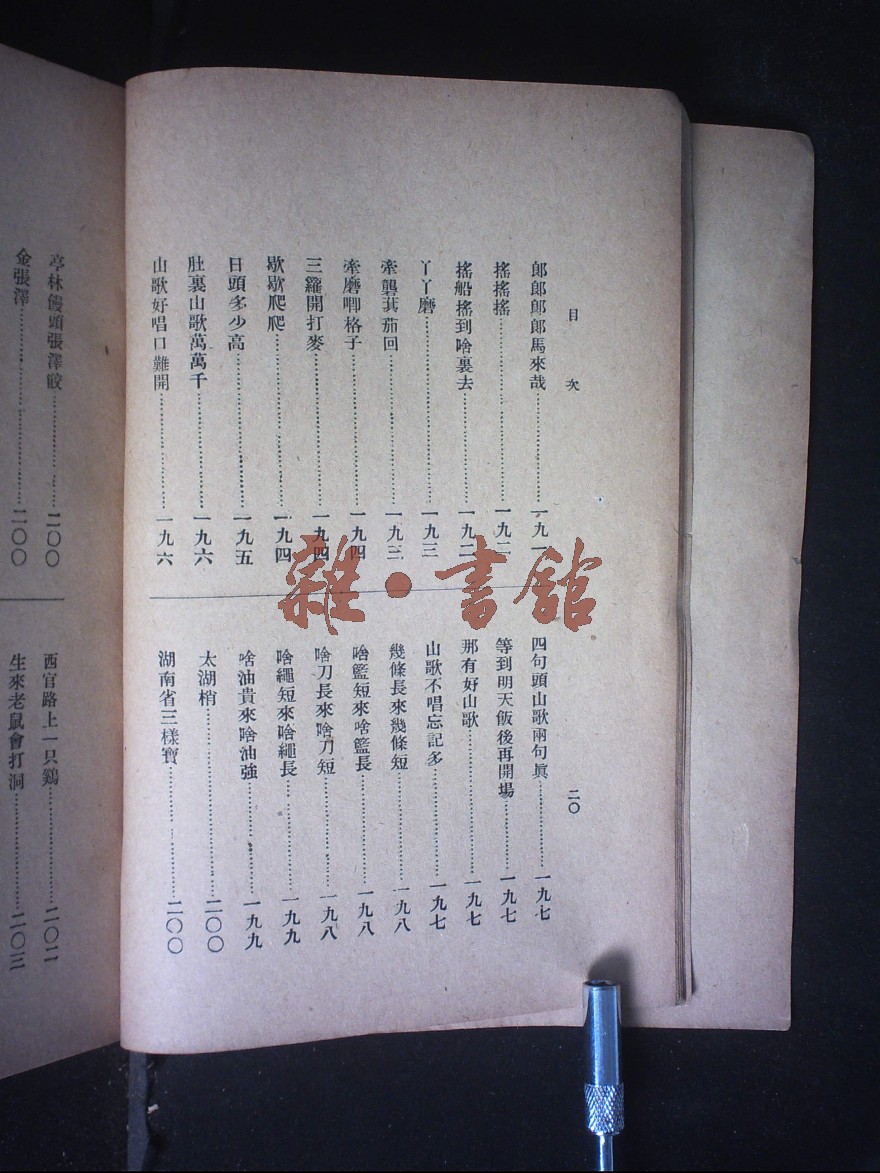 目次
郎郎郎郎馬來哉……一九一
搖搖搖……一九二
搖船搖到啥裏去……一九二
丫丫磨……一九三
牽礱萁茄回……一九三
牽磨唧格子……一九四
三籮開打麥……一九四
歇歇爬爬……一九四
日頭多少高……一九五
肚裏山歌萬萬千……一九六
山歌好唱口難開……一九六
二〇
四句頭山歌兩句真……一九七
等到明天飯後再開場……一九七
那有好山歌……一九七
山歌不唱忘記多……一九七
幾條長來幾條短……一九八
啥籃短來啥籃長……一九八
啥刀長來啥刀短……一九八
啥繩短來啥繩長……一九九
啥油貴來啥油強……一九九
太湖梢……二〇〇
湖南省三樣寶……二〇〇
亭林饅頭張澤餃……二〇〇
金張澤……二〇〇
西官路上一只鷄……二〇二
生來老鼠會打洞……二〇三
雜·書館